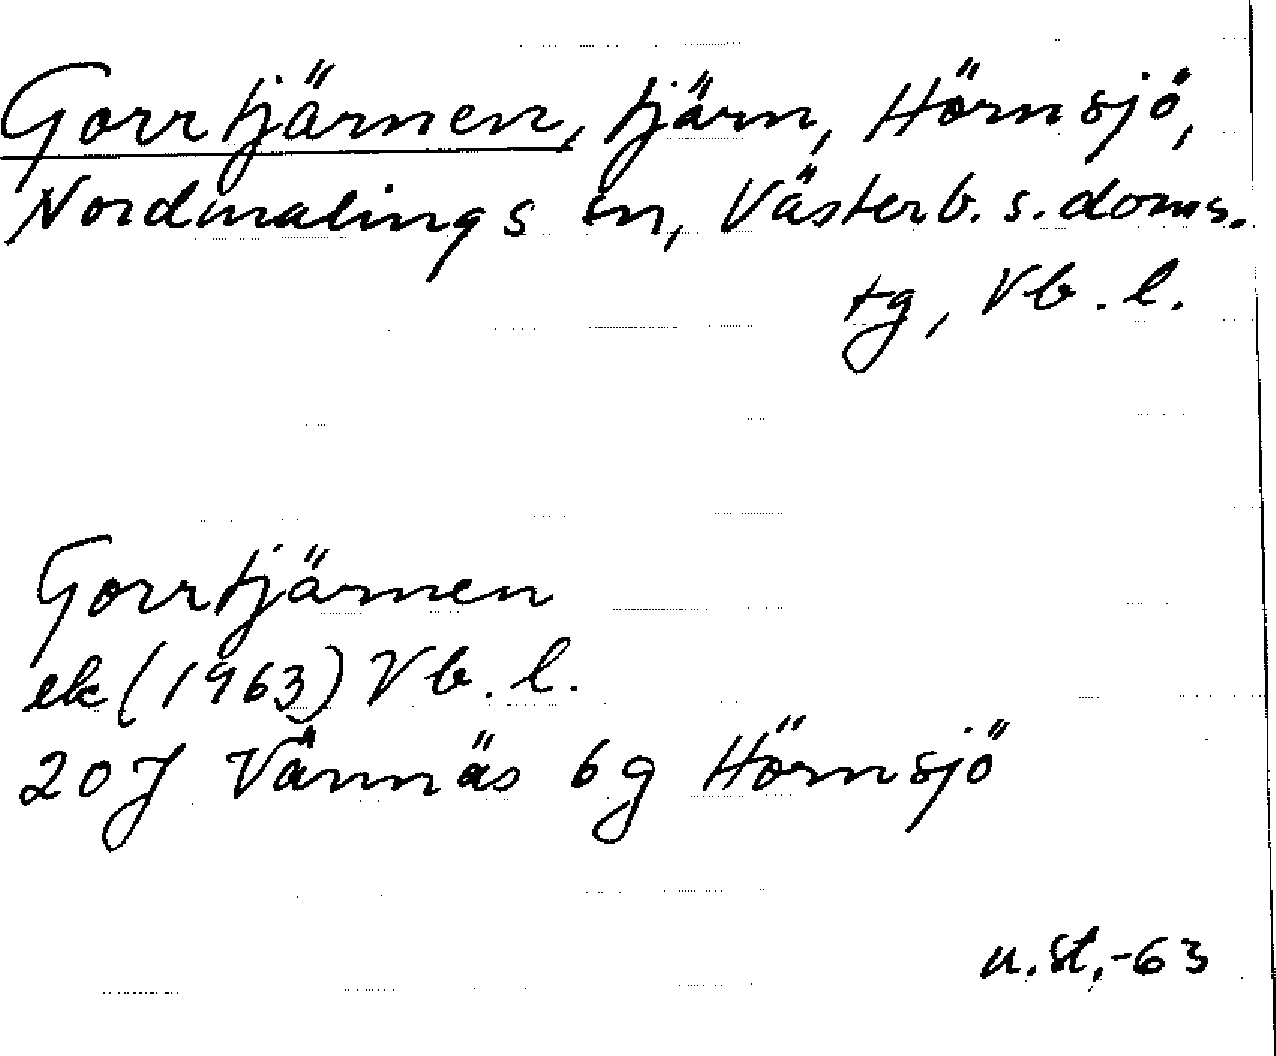 Gorrtjärnen, tjärn, Hörnsjö,
Nordmalings sn, Västerb. s. doms.
tg, Vb. l.
Gorrtjärnen
ek (1963) Vb. l.
20J Vännäs 6g Hörnsjö
u.st.-63